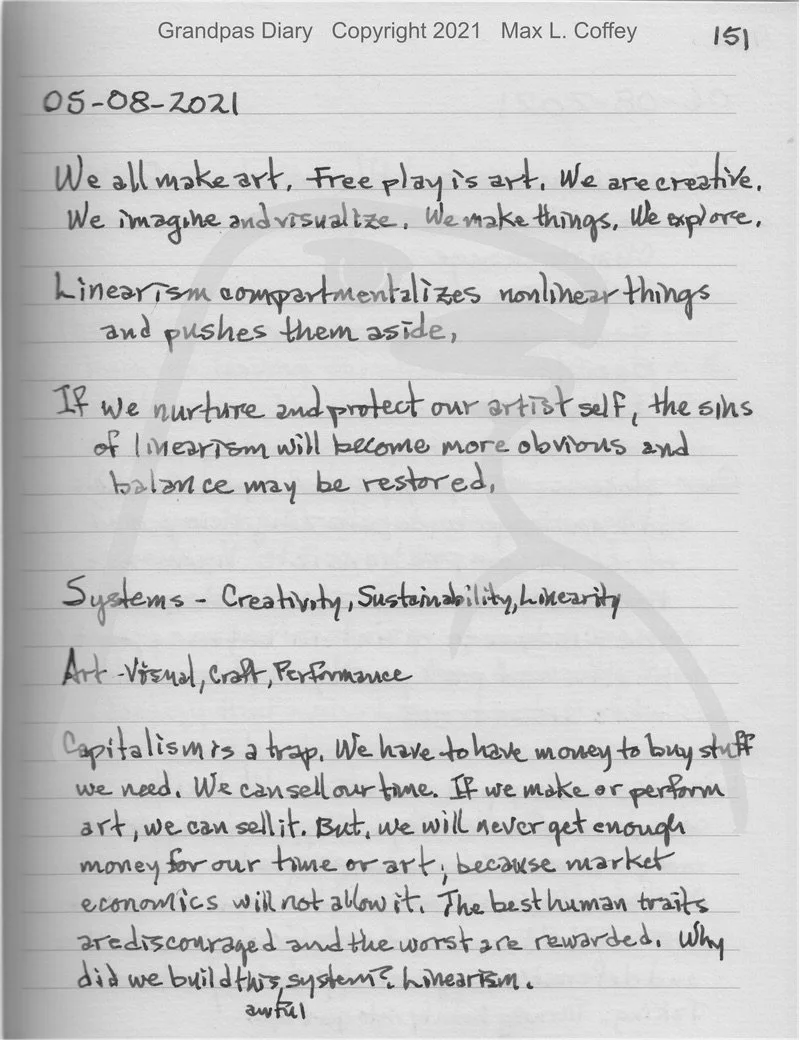 Grandpas Diary Copyright 2021 Max L. Coffey
151
05-08-2021
We all make art. Free play is art. We are creative.
We imagine and visualize. We make things. We explore.
Linearism compartmentalizes nonlinear things
and pushes them aside.
If we nurture and protect our artist self, the sins
of linearism will become more obvious and
balance may be restored.
Systems - Creativity, Sustainability, Linearity
Art - Visual, Craft, Performance
Capitalism is a trap. We have to have money to buy stuff
we need. We can sell our time. If we make or perform
art, we can sell it. But, we will never get enough
money for our time or art; because market
economics will not allow it. The best human traits
are discouraged and the worst are rewarded. Why
did we build this system? Linearism.
awful